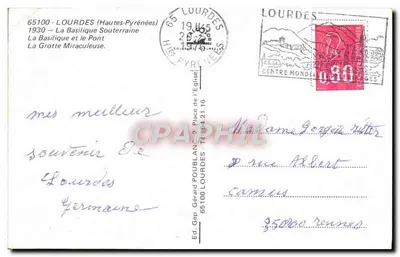 65100 - LOURDES (Hautes-Pyrénées)
1930 - La Basilique Souterraine
La Basilique et le Pont
La Grotte Miraculeuse.
65 LOURDES
19 H45
Htes PYRENEES
LOURDES
CENTRE MONDIAL
0,80
mes meilleur
souvenir de
Lourdes
Germaine
Ed. Gep. Gérard FOUBLANC, Place de l'Eglise
65100 LOURDES - Tél. 94.21.16
Madame Georgette
8 rue Albert
Camus
35000 Rennes